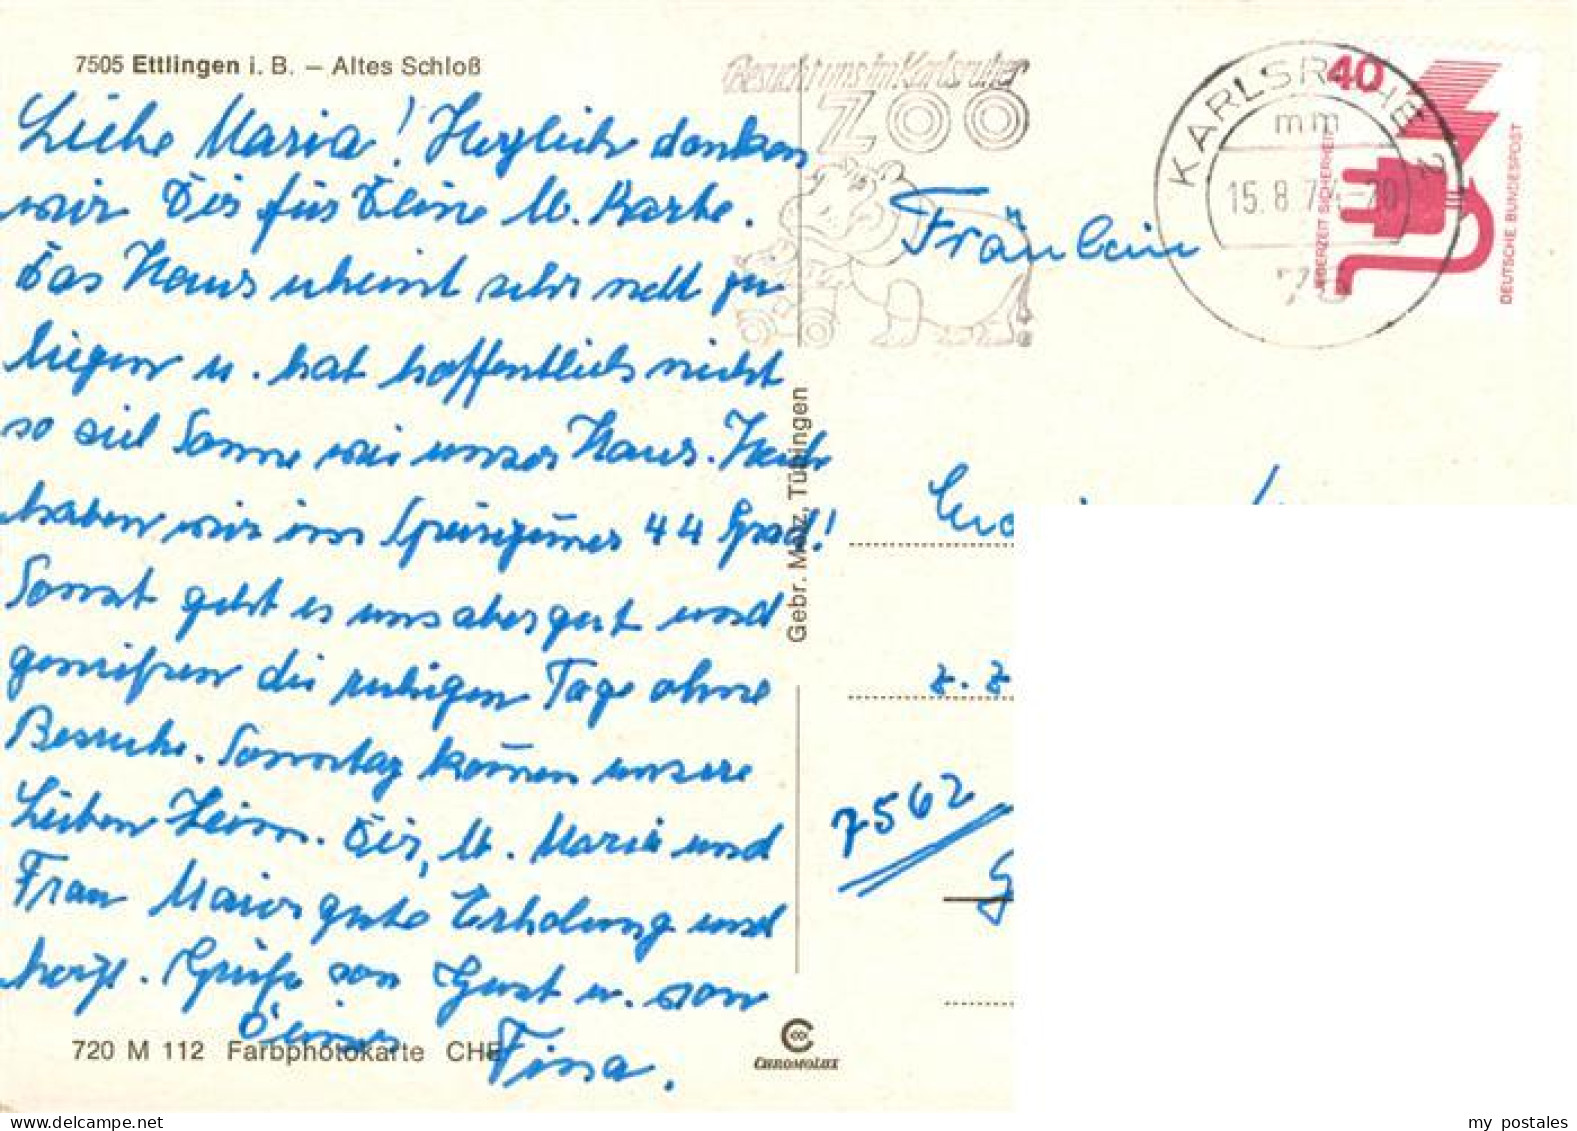 7505 Ettlingen i. B. – Altes Schloß
Liebe Maria! Herzlich danken
wir Dir für Deine lb. Karte.
Das Haus scheint sehr nett zu
liegen u. hat hoffentlich nicht
so viel Sonne wie unser Haus. Heute
haben wir im Speisezimmer 44 Grad!
Sonst geht es uns aber gut und
genießen die ruhigen Tage ohne
Besuche. Sonntag kommen unsere
Lieben heim. Dir, lb. Maria und
Frau Maier gute Erholung und
herzl. Grüße von Gust u. von
Deiner Fina.
720 M 112 Farbphotokarte CHE
Gebr. Metz, Tübingen
CHROMOLUX
Besucht uns im Karlsruher
ZOO
KARLSRUHE 2
mm
15.8.74 - 20
75
40
JEDERZEIT SICHERHEIT
DEUTSCHE BUNDESPOST
Fräulein
z. Z
7562
G
my postales